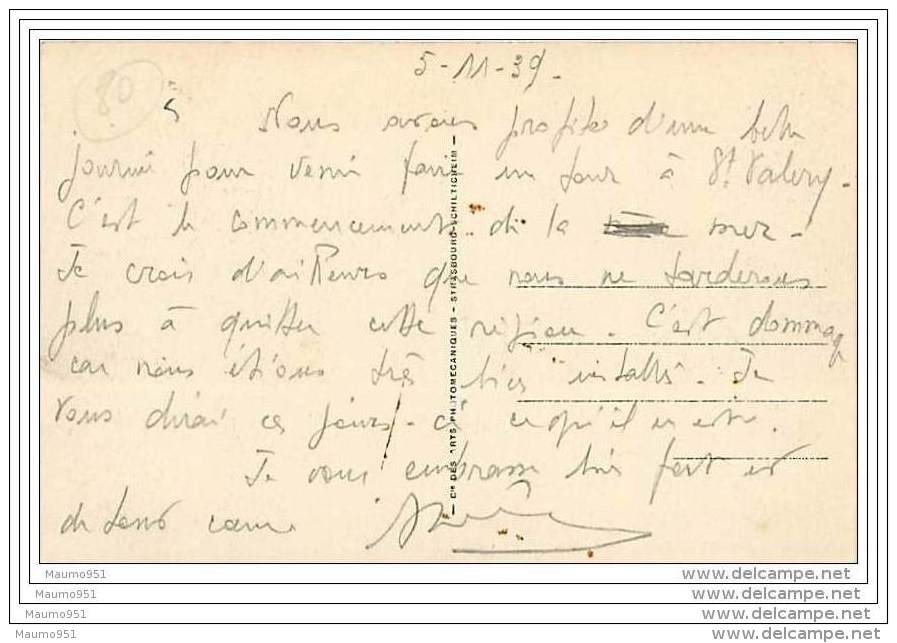 80
5-11-39.
Nous avons profité d'une belle
journée pour venir faire un tour à St Valery.
C'est le commencement de la mer.
Je crois d'ailleurs que nous ne tarderons
plus à quitter cette région. C'est dommage
car nous étions très bien installés. Je
vous dirai ces jours-ci ce qu'il en est.
Je vous embrasse bien fort et
de tout cœur.
Cie DES ARTS PHOTOMECANIQUES - STRASBOURG-SCHILTIGHEIM -
Maumo951 www.delcampe.net
Maumo951 www.delcampe.net
Maumo951 www.delcampe.net
Maumo951 www.delcampe.net